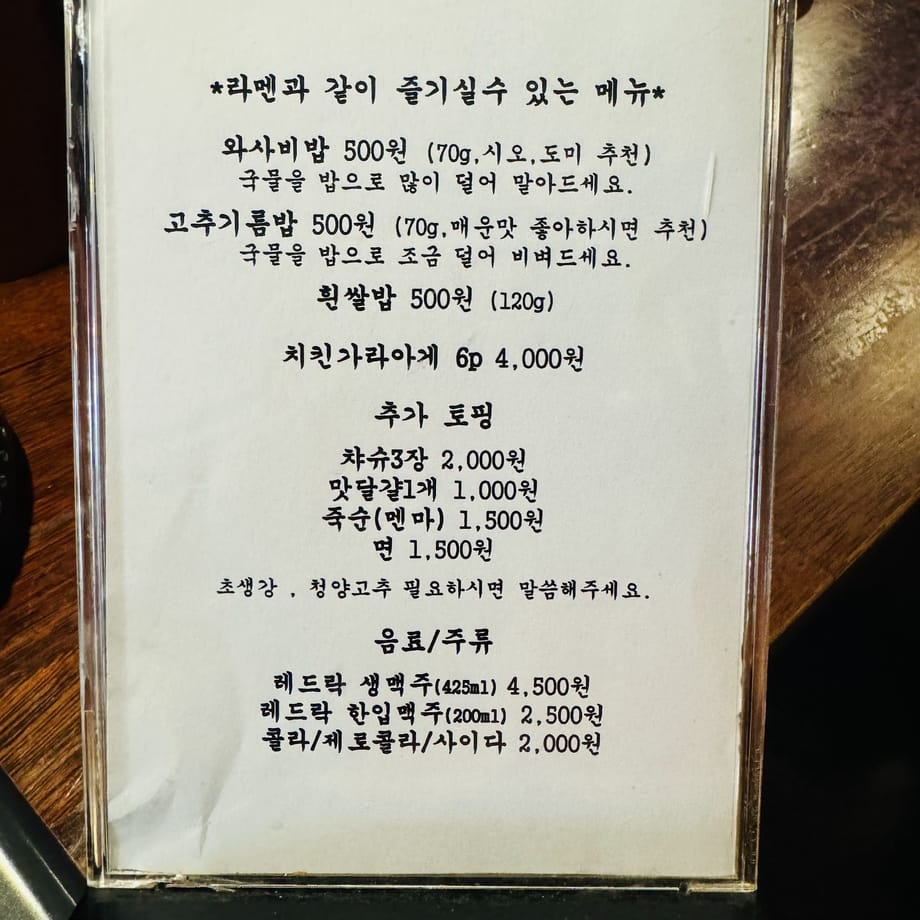 *라멘과 같이 즐기실수 있는 메뉴*
와사비밥 500원 (70g,시오,도미 추천)
국물을 밥으로 많이 덜어 말아드세요.
고추기름밥 500원 (70g,매운맛 좋아하시면 추천)
국물을 밥으로 조금 덜어 비벼드세요.
흰쌀밥 500원 (120g)
치킨가라아게 6p 4,000원
추가 토핑
챠슈3장 2,000원
맛달걀1개 1,000원
죽순(멘마) 1,500원
면 1,500원
초생강 , 청양고추 필요하시면 말씀해주세요.
음료/주류
레드락 생맥주(425ml) 4,500원
레드락 한입맥주(200ml) 2,500원
콜라/제로콜라/사이다 2,000원